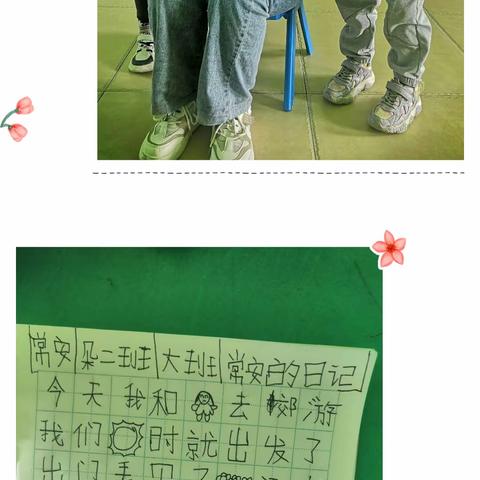 常安 朵二班 大班 常安的日记
今天我和去郊游
我们时就出发了
出门